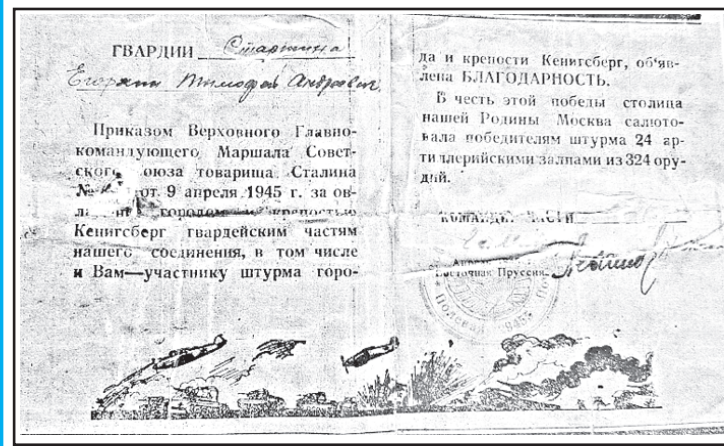 ГВАРДИИ Старшина
Егоркин Тимофей Андреевич
Приказом Верховного Главно-
командующего Маршала Совет-
ского оюза товарища Сталина
№ от 9 апреля 1945 г. за ов-
ла городом и крепостью
Кенигсберг гвардейским частям
нашего соединения, в том числе
и Вам—участнику штурма горо-
да и крепости Кенигсберг, об'яв-
лена БЛАГОДАРНОСТЬ.
В честь этой победы столица
нашей Родины Москва салюто-
вала победителям штурма 24 ар-
тиллерийскими залпами из 324 ору-
дий.
КОМАНДИР ЧАСТИ
Восточная Пруссия.
Полевая